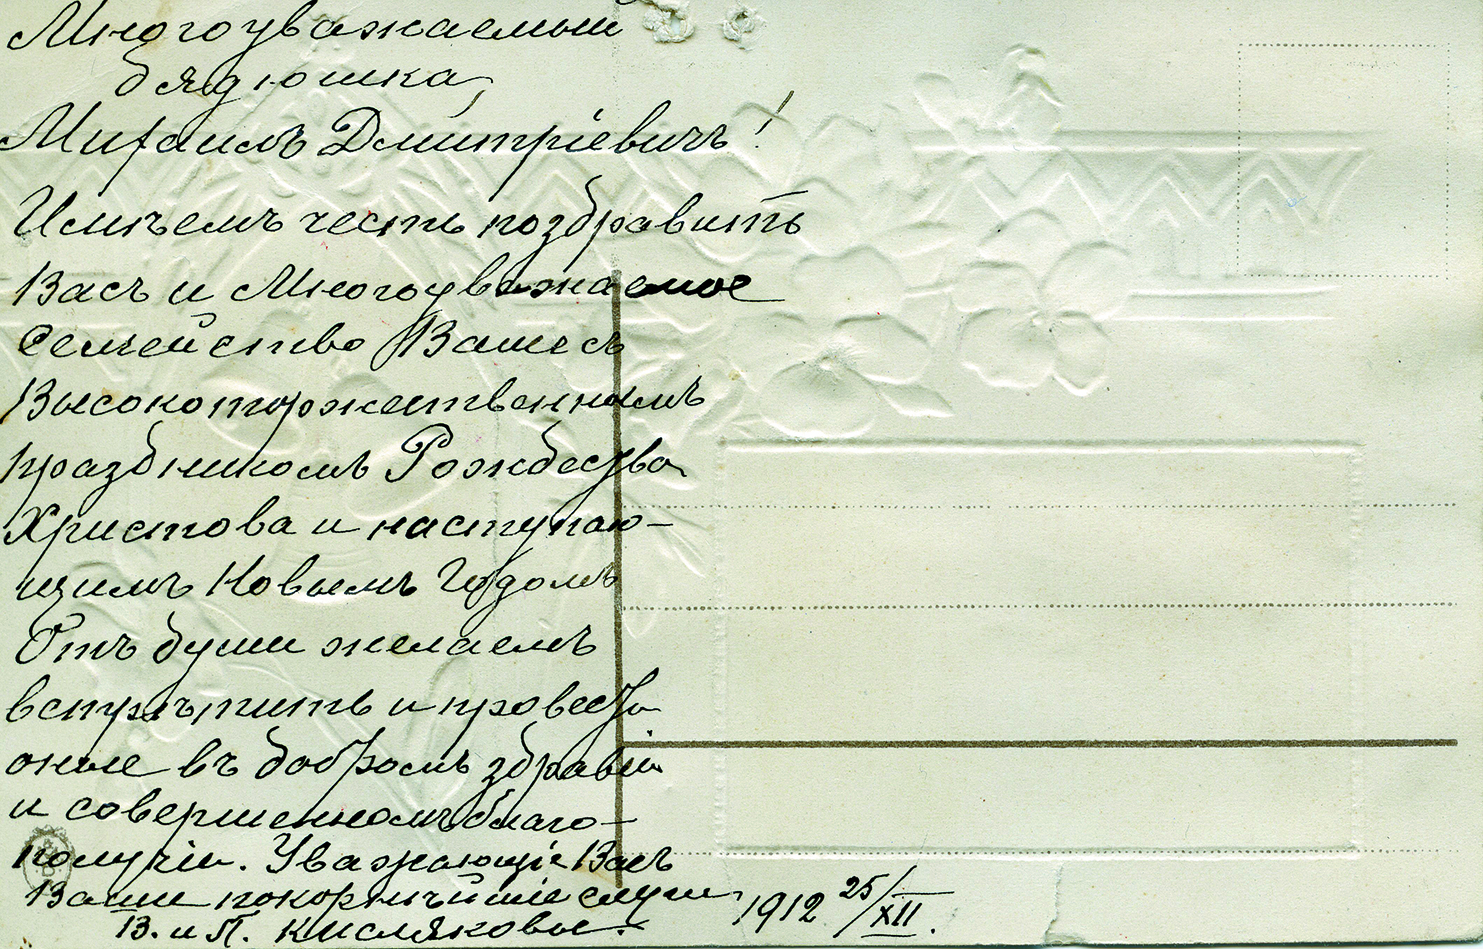 Многоуважаемый
дядюшка,
Михаилъ Дмитріевичъ!
Имѣемъ честь поздравить
Васъ и Многоуважаемое
Семейство Ваше съ
Высокоторжественнымъ
праздникомъ Рождества
Христова и наступаю-
щимъ Новымъ Годомъ
Отъ души желаемъ
встрѣтить и провести
оные въ добромъ здравіи
и совершенномъ благо-
получіи. Уважающіе Васъ
Ваши покорнѣйшіе слуги
В. и П. Кисляковы. 1912 25/XII.